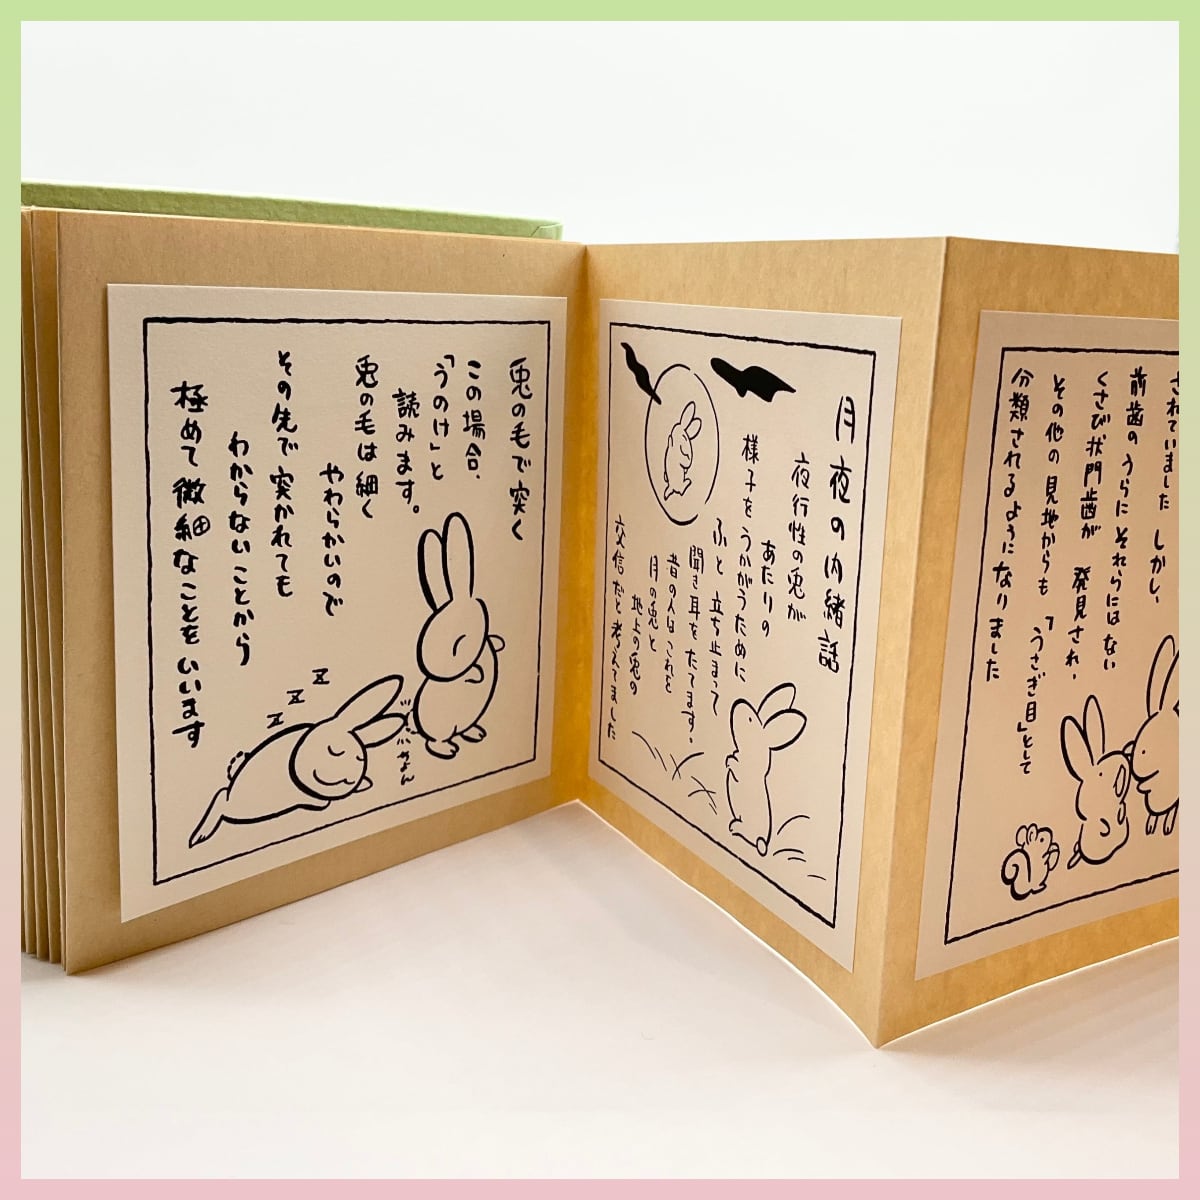 されていました しかし、
前歯のうらにそれらにはない
くさび状門歯が 発見され、
その他の見地からも「うさぎ目」として
分類されるようになりました
月夜の内緒話
夜行性の兎が
あたりの
様子をうかがうために
ふと 立ち止まって
聞き耳をたてます。
昔の人はこれを
月の兎と
地上の兎の
交信だと考えてました
兎の毛で突く
この場合、
「うのけ」と
読みます。
兎の毛は細く
やわらかいので
その先で突かれても
わからないことから
極めて微細なことをいいます
ちょん
z z z